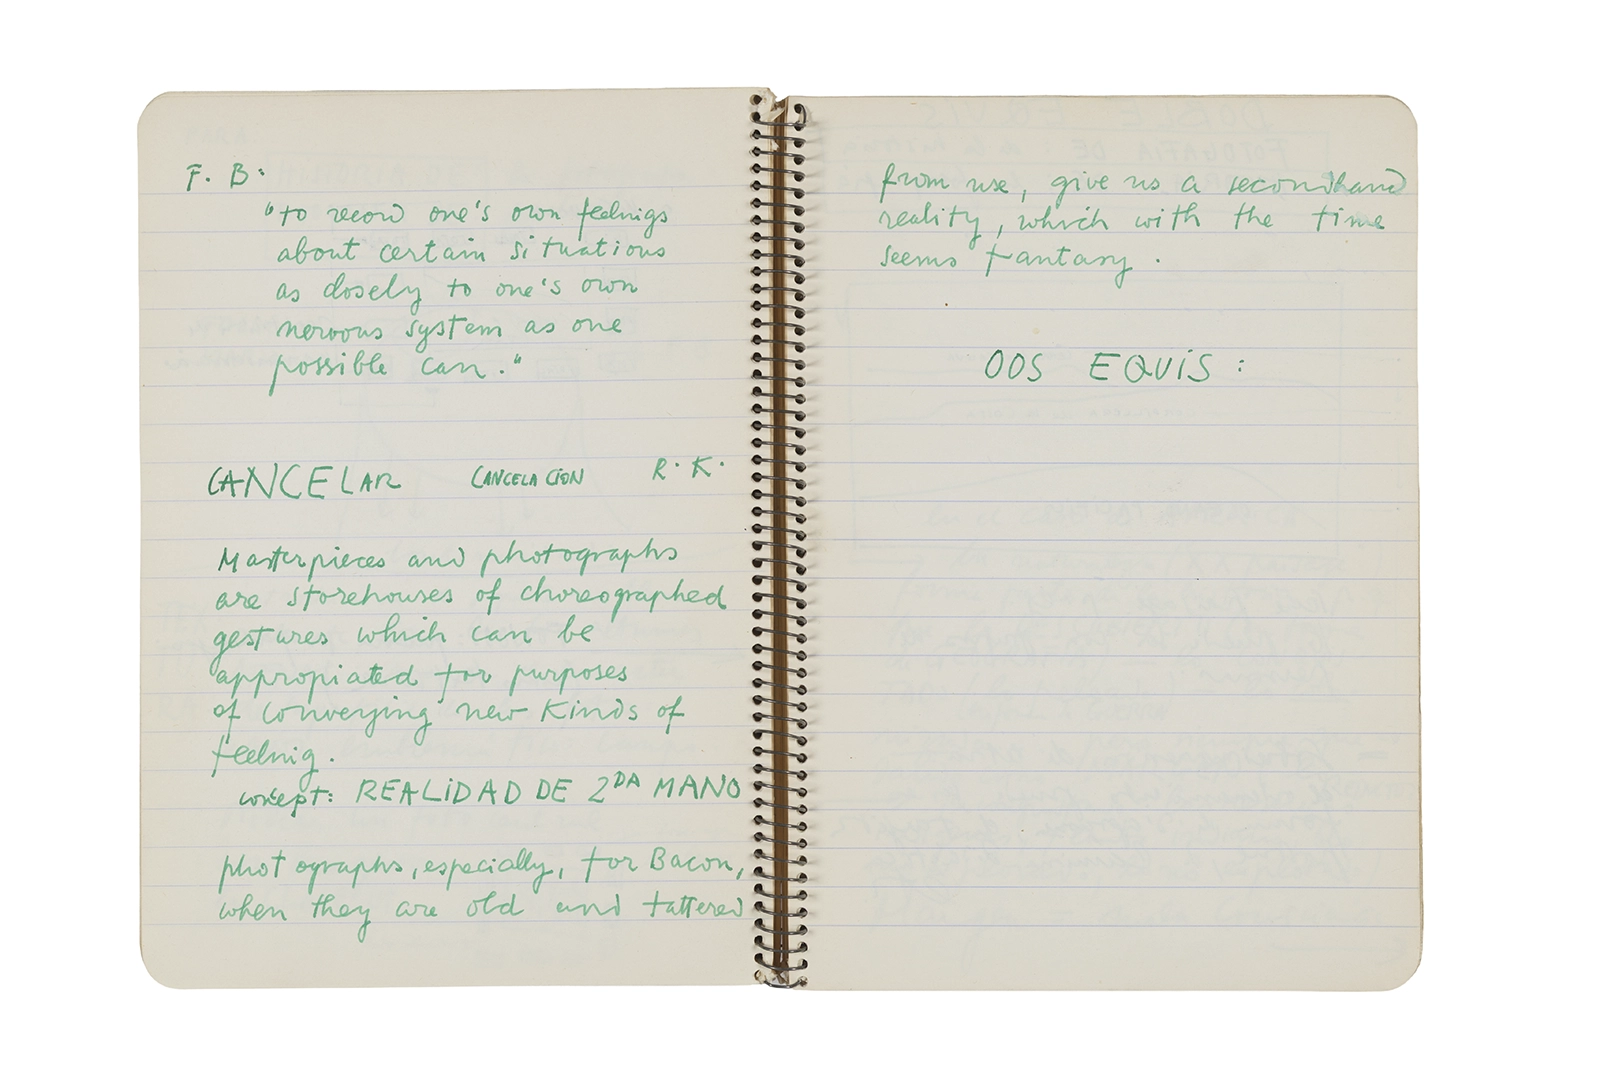 F. B.
"to record one's own feelings
about certain situations
as closely to one's own
nervous system as one
possible can."
CANCELAR CANCELACION R. K.
Masterpieces and photographs
are storehouses of choreographed
gestures which can be
appropiated for purposes
of converying new kinds of
feelnig.
concept: REALIDAD DE 2DA MANO
photographs, especially, for Bacon,
when they are old and tattered
from use, give us a secondhand
reality, which with the time
seems fantasy.
DOS EQUIS: